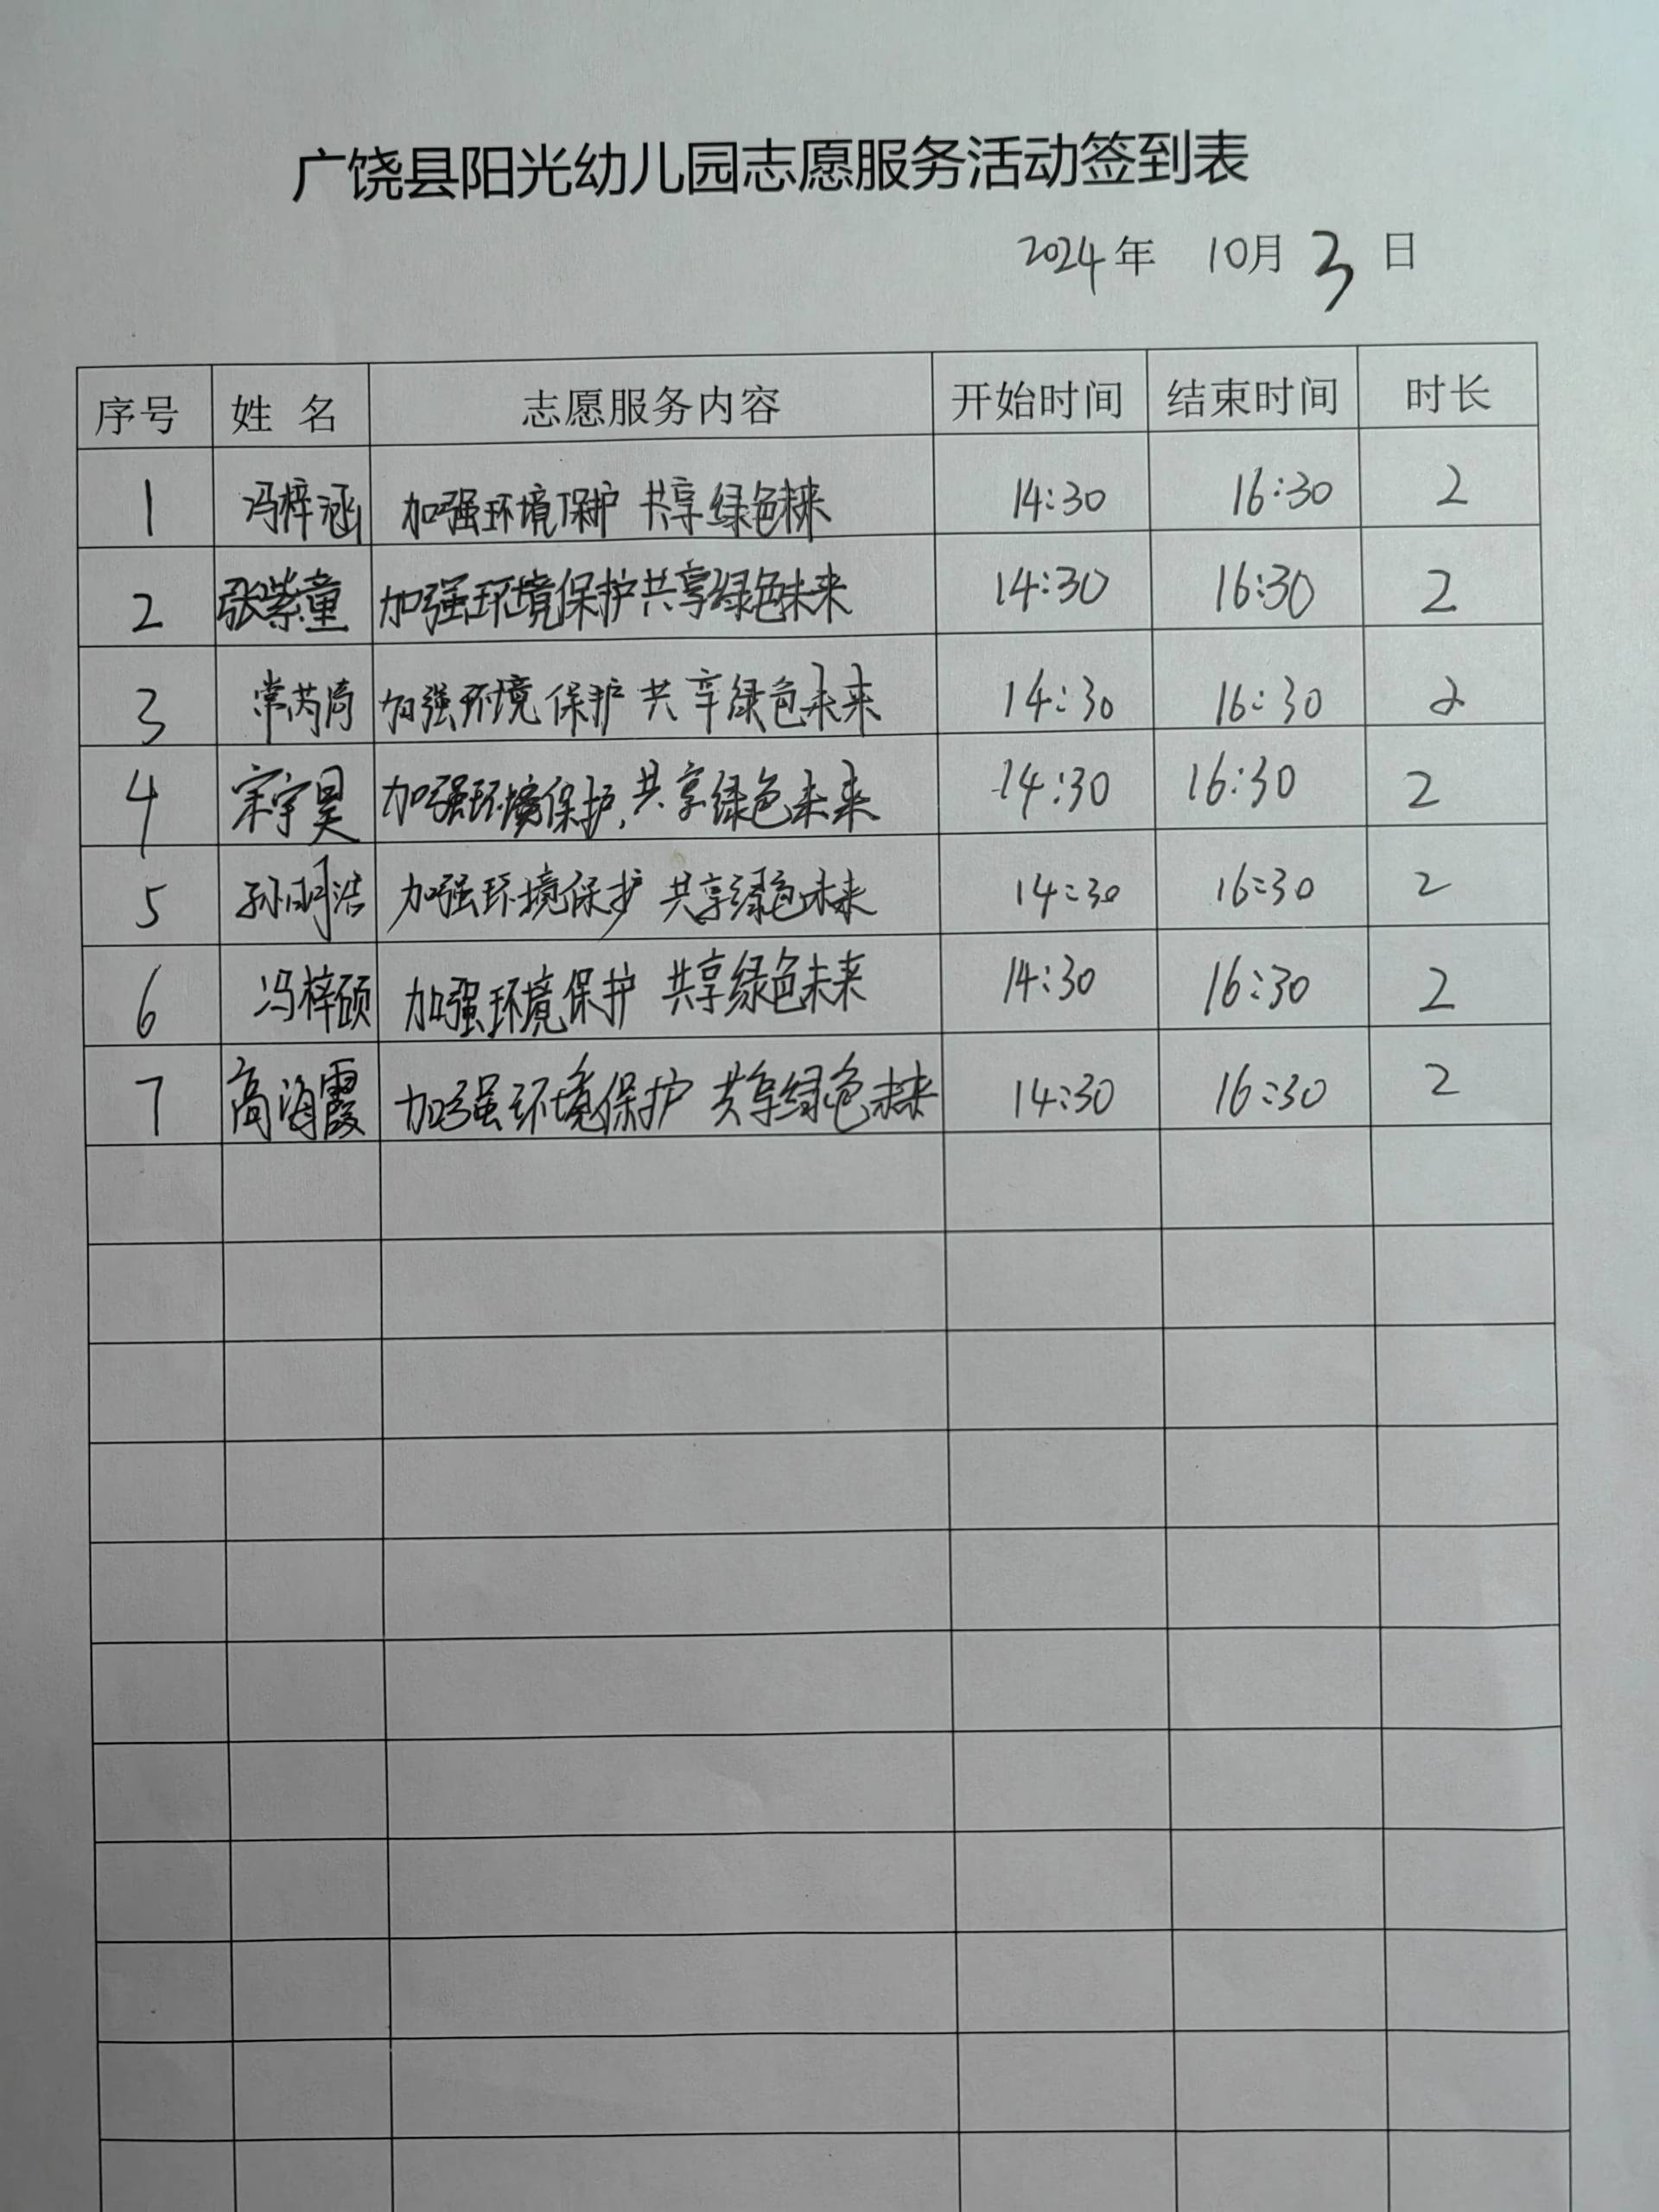 广饶县阳光幼儿园志愿服务活动签到表
2024年 10月 3 日
序号 姓名 志愿服务内容 开始时间 结束时间 时长
1 冯梓涵 加强环境保护 共享绿色未来 14:30 16:30 2
2 张紫童 加强环境保护共享绿色未来 14:30 16:30 2
3 常芮漪 加强环境保护 共享绿色未来 14:30 16:30 2
4 宋宇昊 加强环境保护,共享绿色未来 14:30 16:30 2
5 孙明浩 加强环境保护 共享绿色未来 14:30 16:30 2
6 冯梓硕 加强环境保护 共享绿色未来 14:30 16:30 2
7 高海霞 加强环境保护 共享绿色未来 14:30 16:30 2